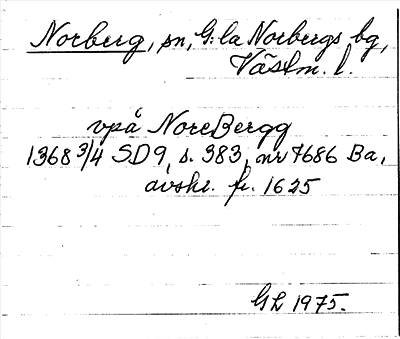 Norberg, sn, G:la Norbergs bg,
Västm. l.
vpå NoreBergg
1368 3/4 SD9, s. 383, nr 7686 Ba,
avskr. fr. 1625
GL 1975.